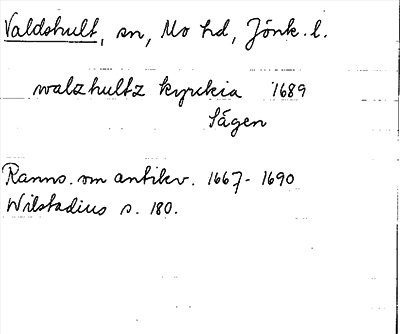 Valdshult, sn, Mo hd, Jönk. l.
walzhultz kyrckia 1689
Sägen
Ranns. om antikv. 1667-1690
Wilstadius s. 180.